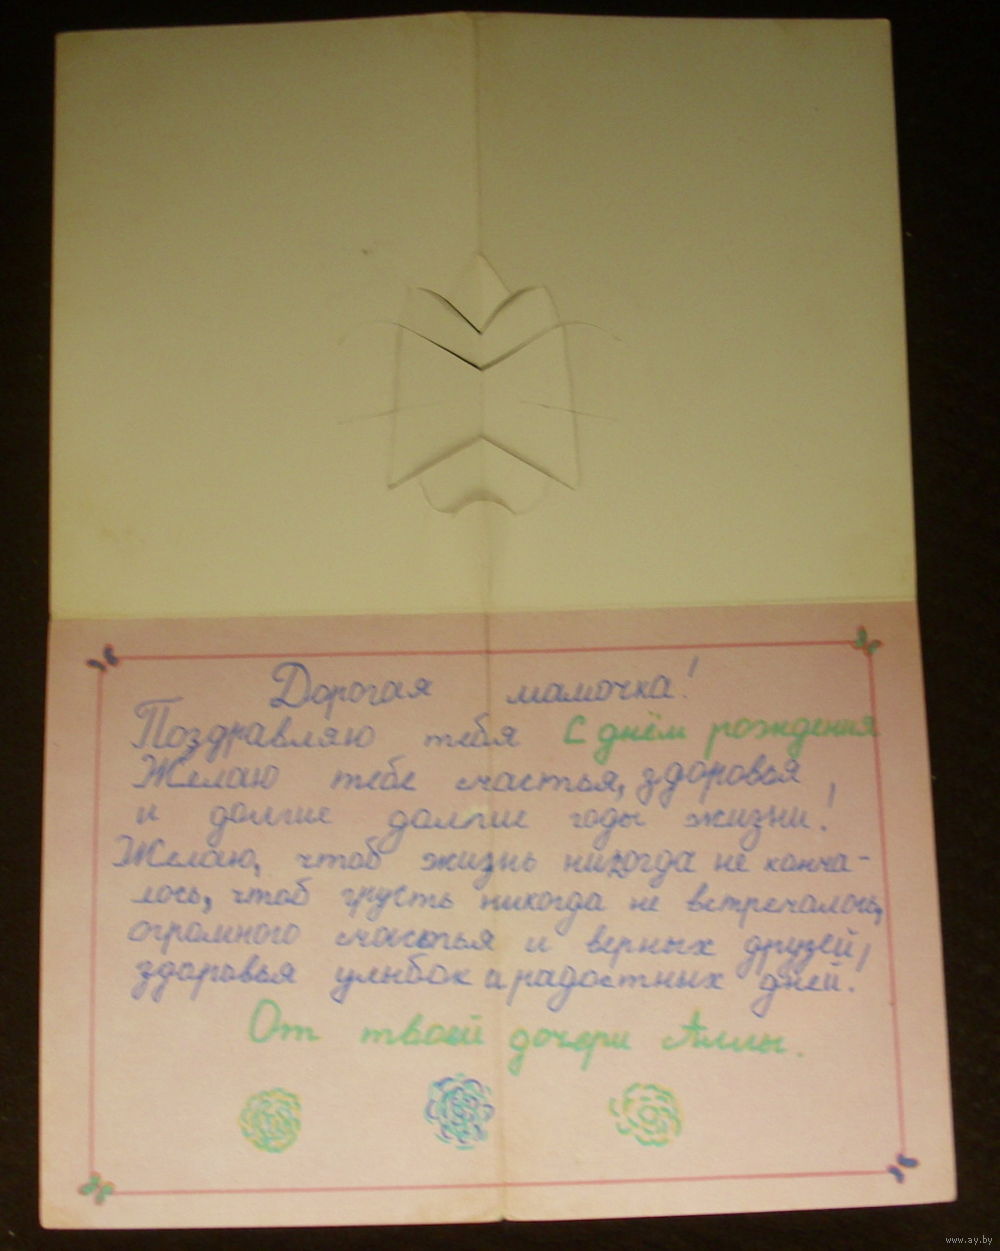 Дорогая мамочка!
Поздравляю тебя С днём рождения
Желаю тебе счастья, здоровья,
и долгие долгие годы жизни!
Желаю, чтоб жизнь никогда не конча-
лось, чтоб грусть никогда не встречалось,
огромного счастья и верных друзей,
здоровья улыбок и радостных дней!
От твоей дочери Аллы.
www.ay.by